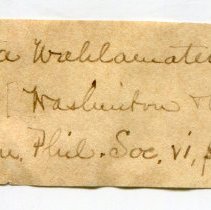 ta Wahlamaten
[ Washinton &
n. Phil. Soc. vi, p